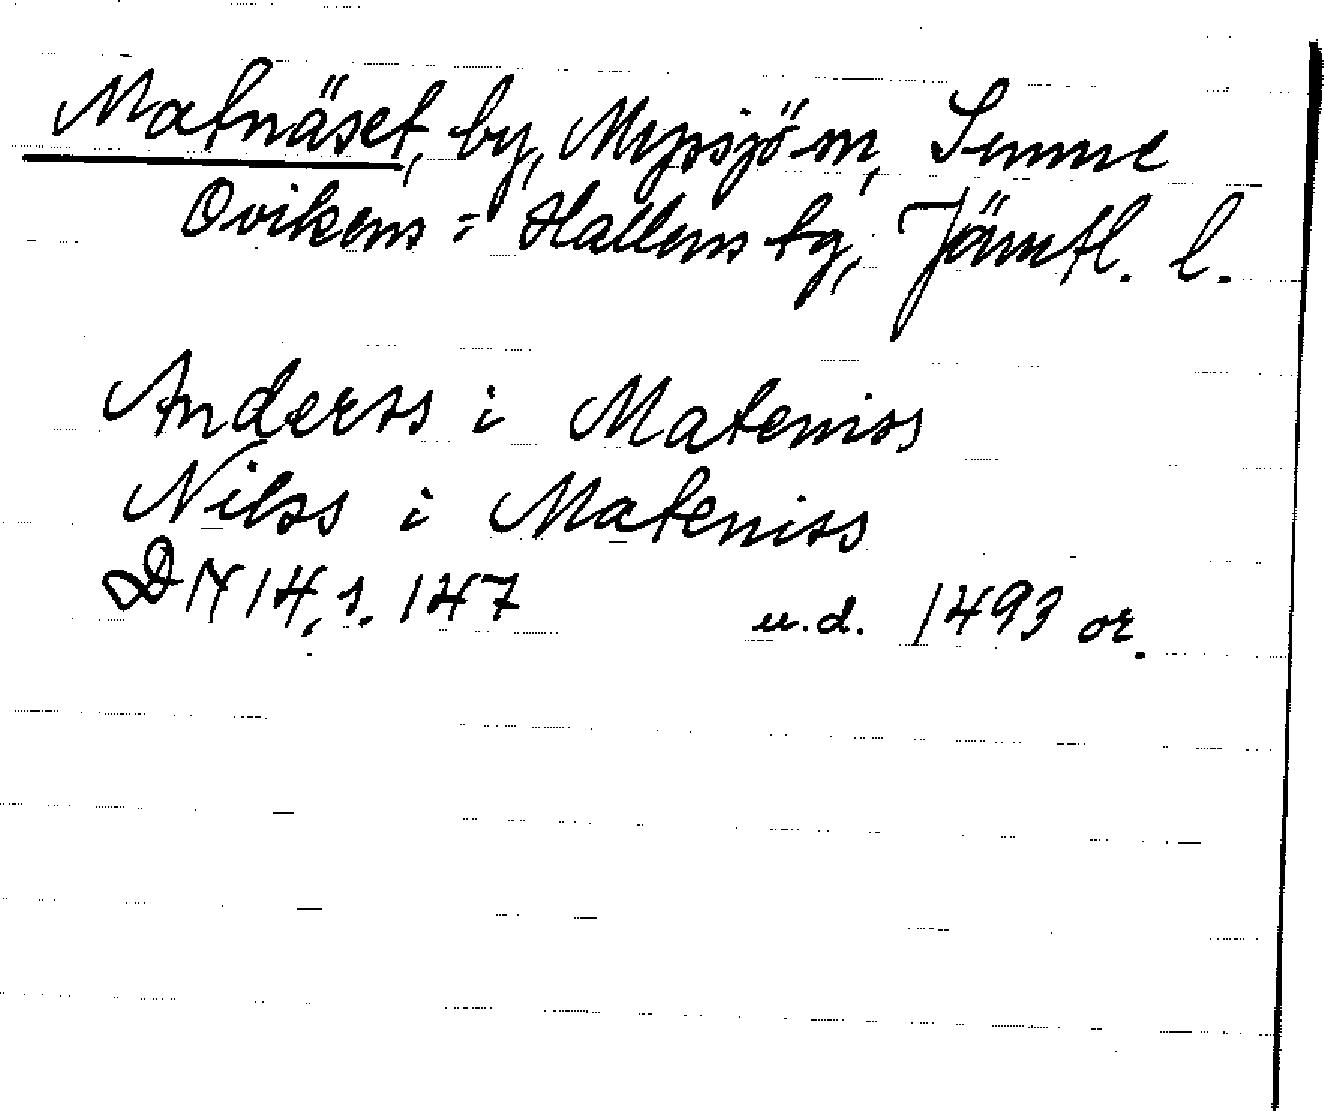 Matnäset, by, Myssjö sn, Sunne
Ovikens = Hallens tg, Jämtl. l.
Anderss i Mateniss
Nilss i Mateniss
DN 14, s. 147 u.d. 1493 or.